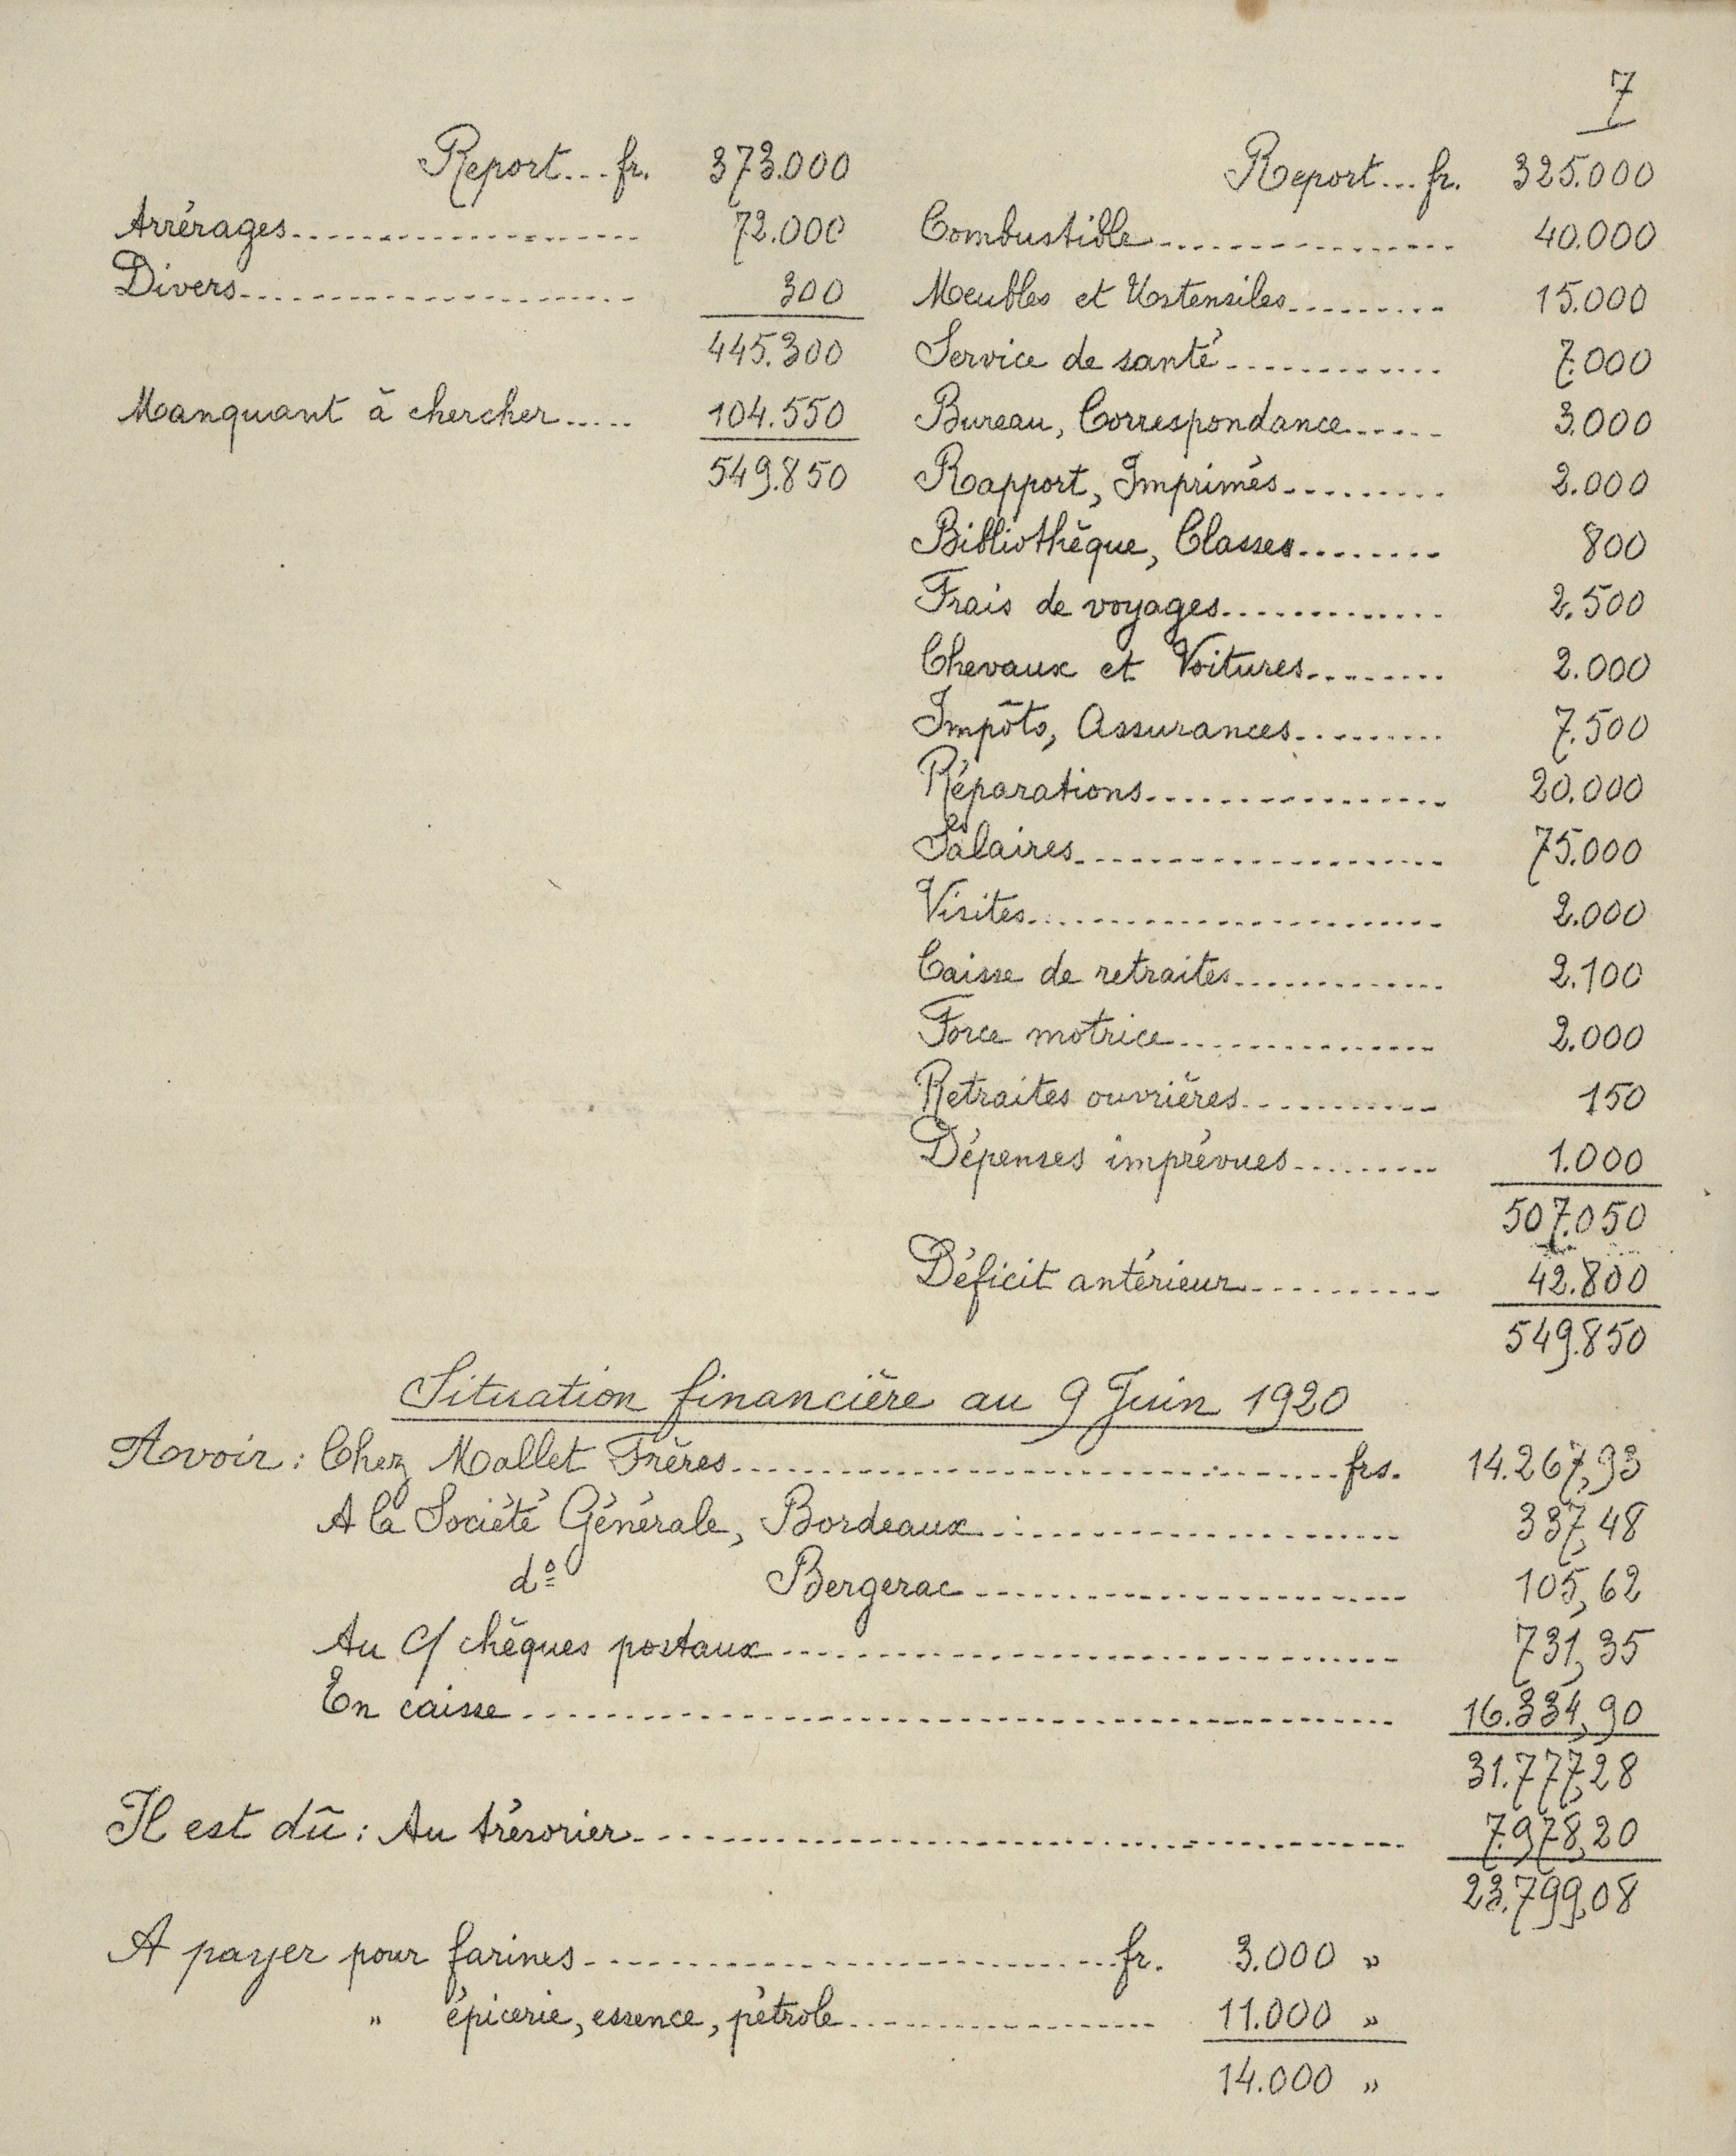 7
Report... fr. 373.000
Arrérages 72.000
Divers 300
445.300
Manquant à chercher 104.550
549.850
Report... fr. 325.000
Combustible 40.000
Meubles et Ustensiles 15.000
Service de santé 7.000
Bureau, Correspondance 3.000
Rapport, Imprimés 2.000
Bibliothèque, Classes 800
Frais de voyages 2.500
Chevaux et Voitures 2.000
Impôts, Assurances 7.500
Réparations 20.000
Salaires 75.000
Visites 2.000
Caisse de retraites 2.100
Force motrice 2.000
Retraites ouvrières 150
Dépenses imprévues 1.000
507.050
Déficit antérieur 42.800
549.850
Situation financière au 9 Juin 1920
Avoir : Chez Mallet Frères frs. 14.267,93
A la Société Générale, Bordeaux 337,48
dº Bergerac 105,62
Au C/ chèques postaux 731,35
En caisse 16.334,90
31.777,28
Il est dû : Au trésorier 7.978,20
23.799,08
A payer pour farines fr. 3.000 »
" épicerie, essence, pétrole 11.000 »
14.000 »